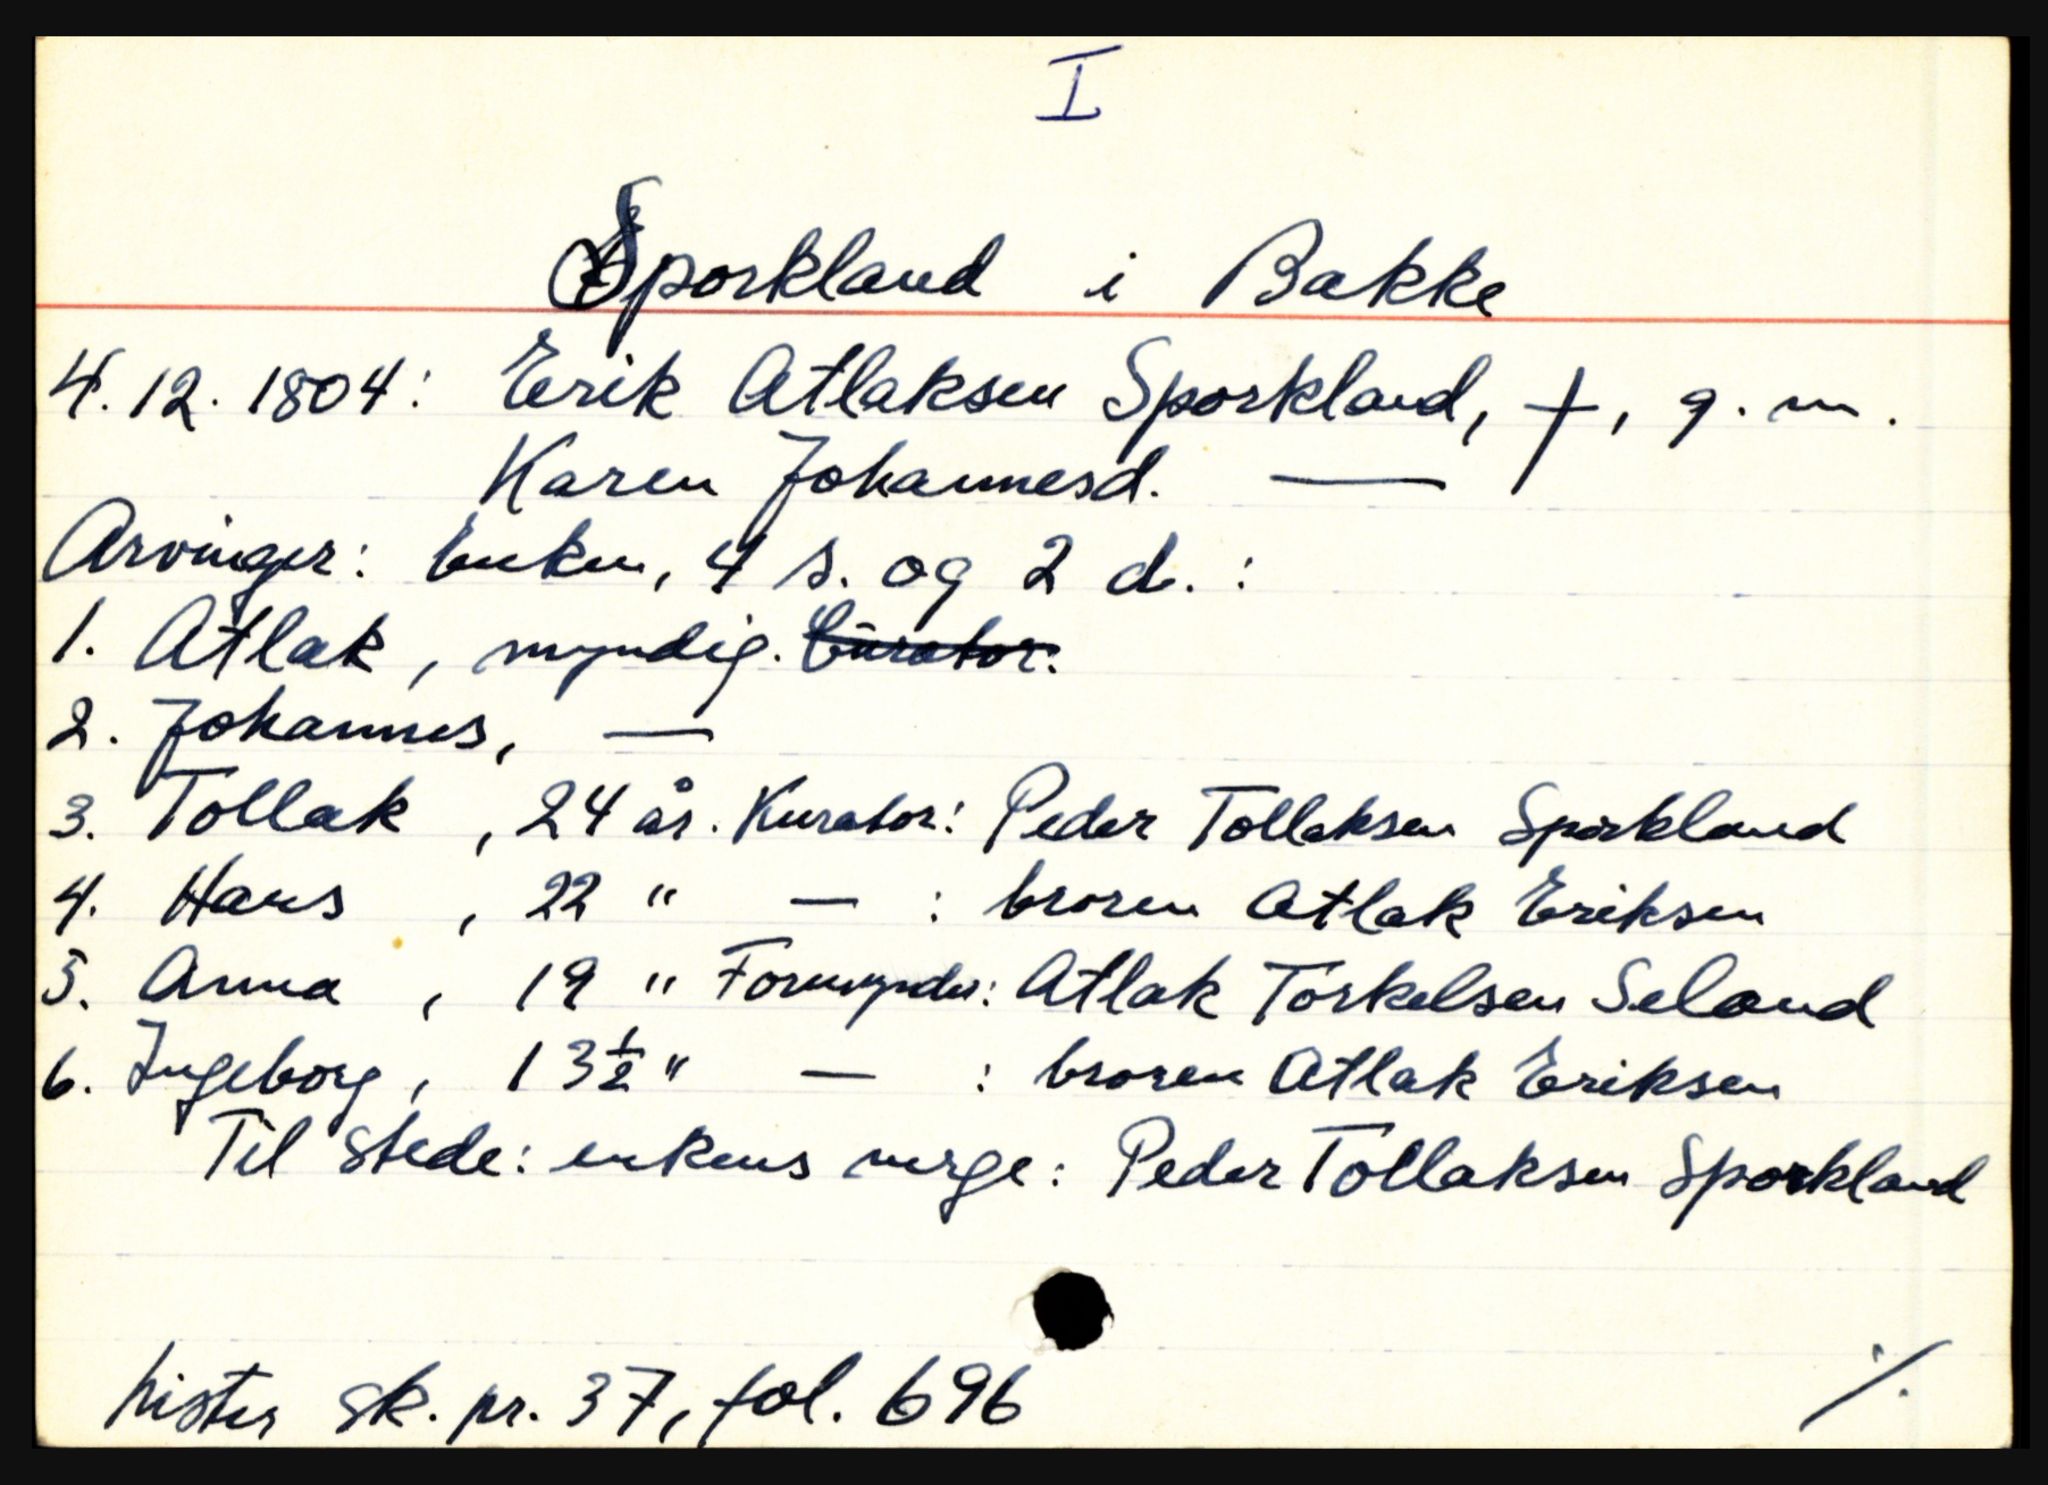 I
Sporkland i Bakke
4.12.1804: Erik Atlaksen Sporkland, †, g.m.
Karen Johannesd. —
Arvinger: Enken, 4 s. og 2 d.:
1. Atlak, myndig. Kurator:
2. Johannes, —
3. Tollak, 24 år. Kurator: Peder Tollaksen Sporkland
4. Hans, 22 " — : broren Atlak Eriksen
5. Anna, 19 " Formynder: Atlak Torkelsen Seland
6. Ingeborg, 13½ " — : broren Atlak Eriksen
Til stede: enkens verge: Peder Tollaksen Sporkland
Lister sk. pr. 37, fol. 696 ./.